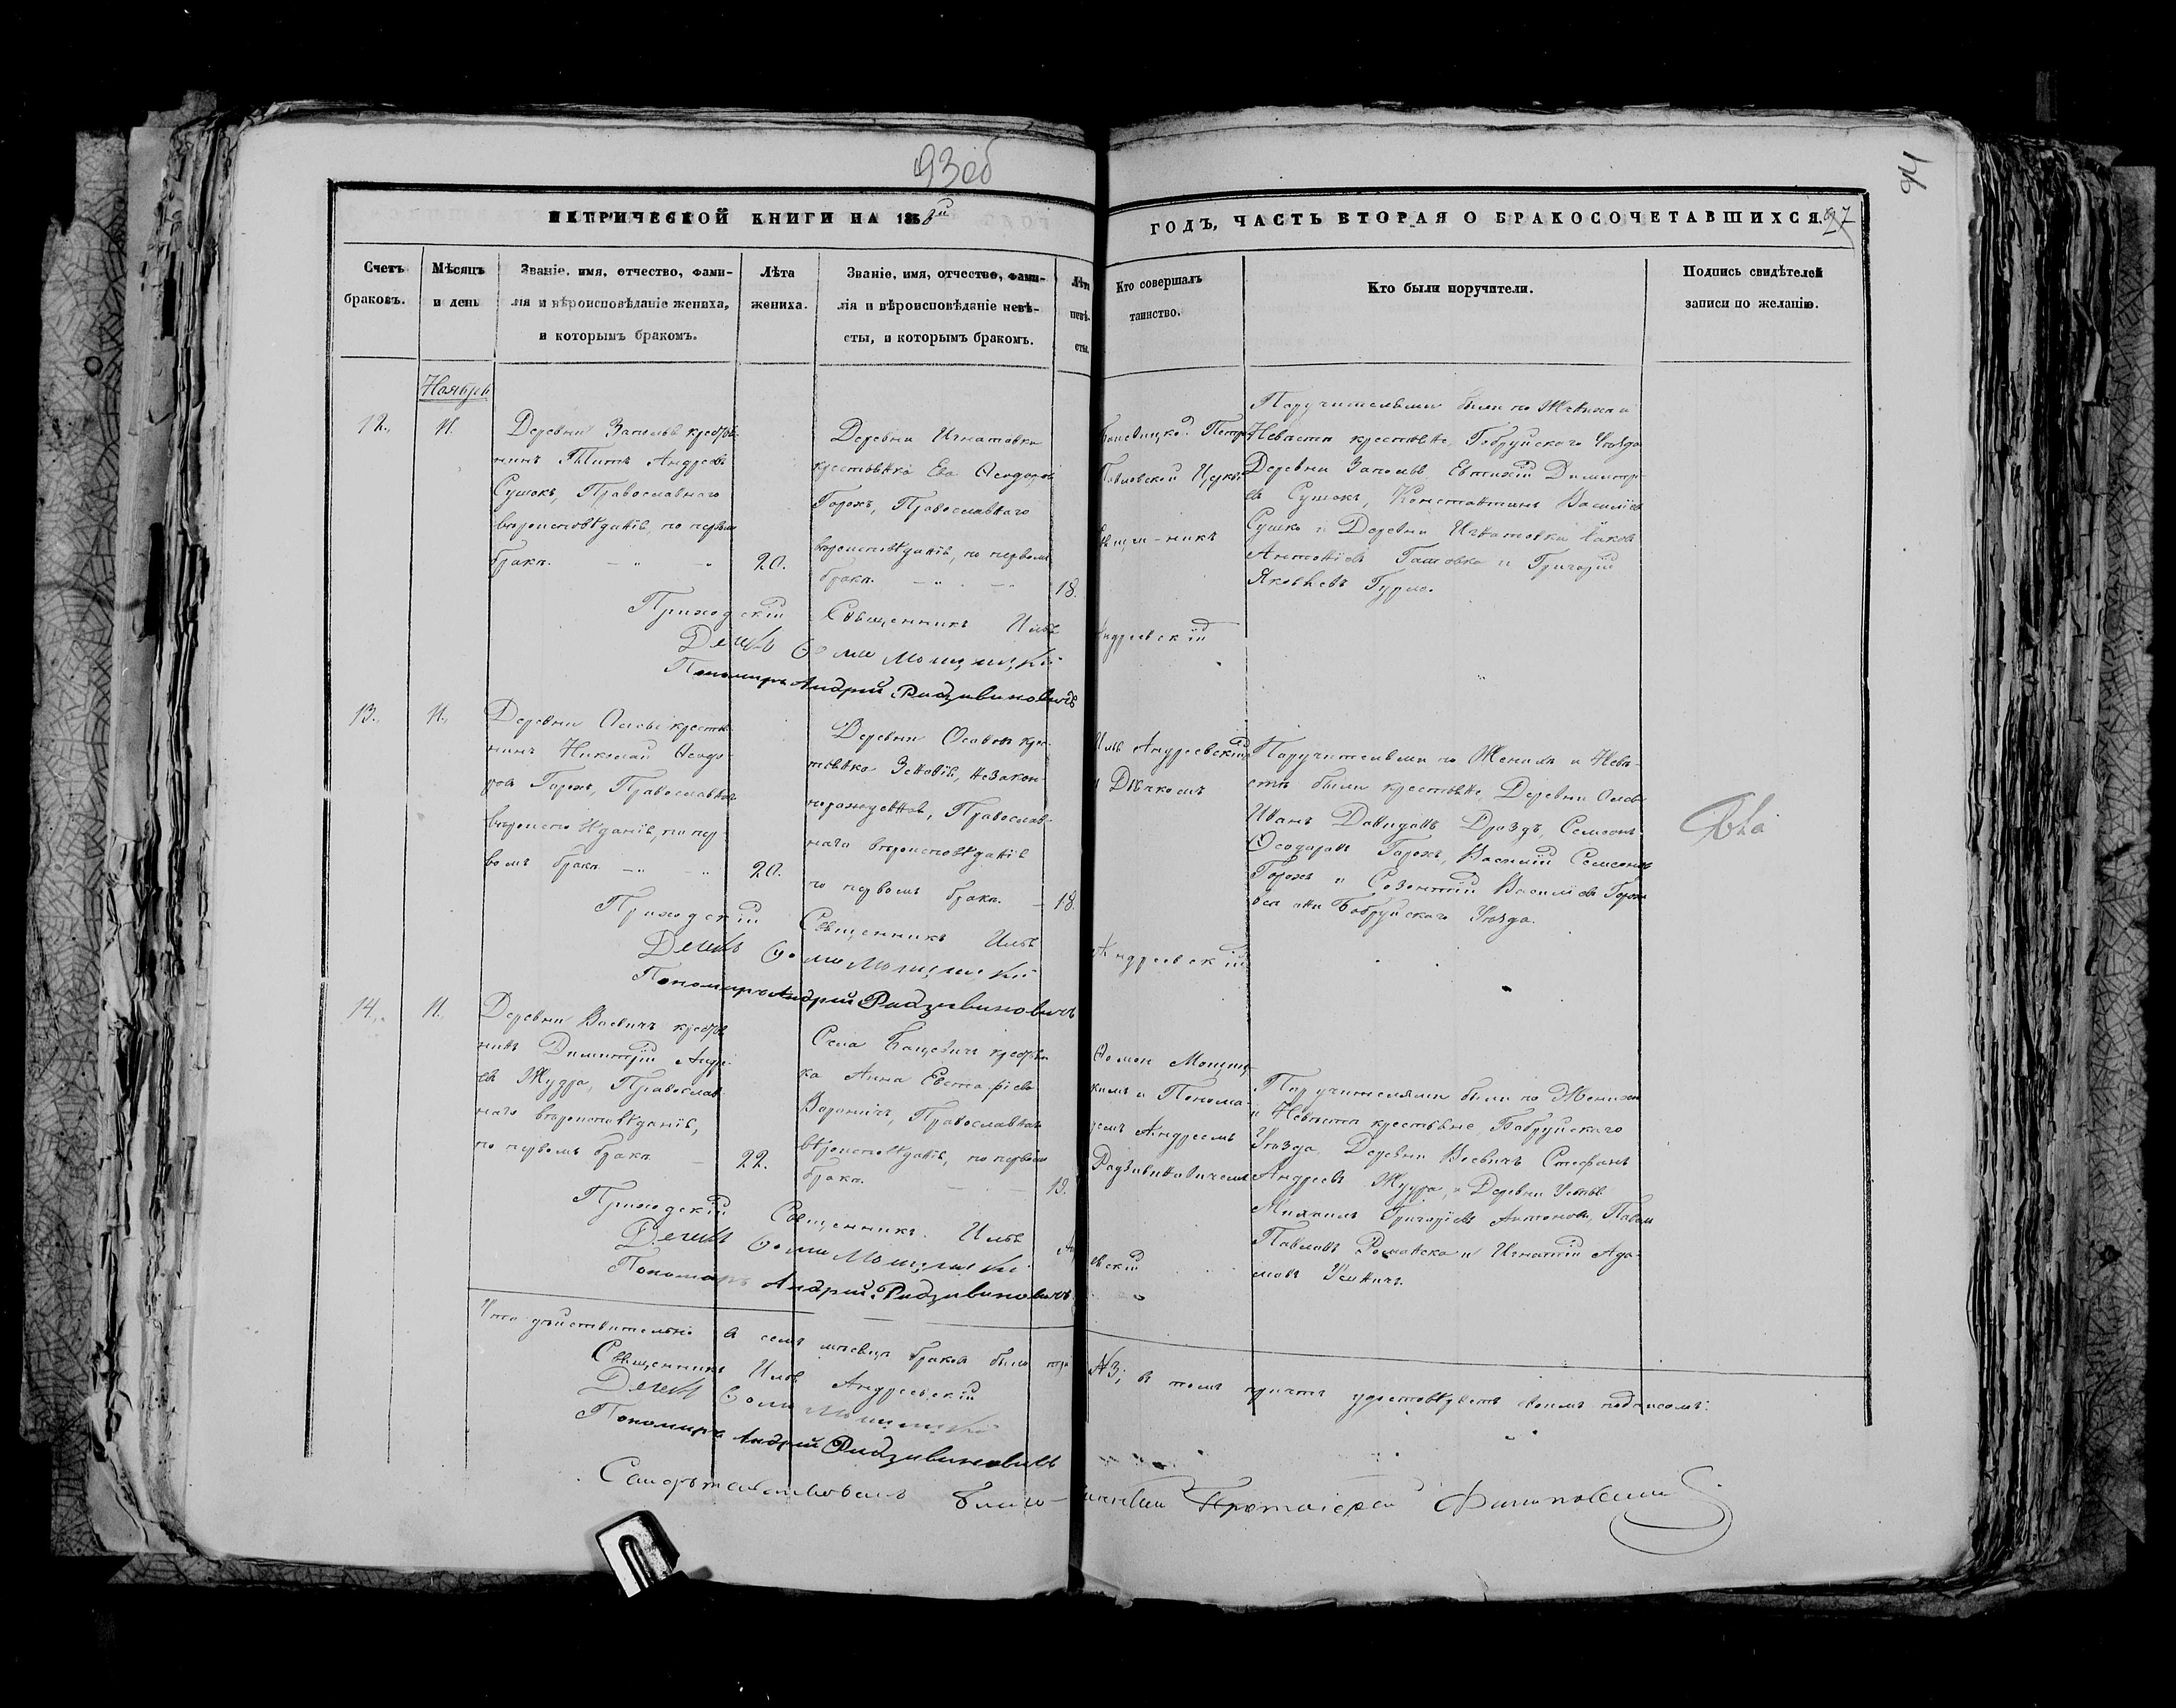 93об
94
МЕТРИЧЕСКОЙ КНИГИ НА 185
ГОДЪ, ЧАСТЬ ВТОРАЯ О БРАКОСОЧЕТАВШИХСЯ.
Счетъ
браковъ.
Мѣсяцъ
и день
Званіе, имя, отчество, фами-
лія и вѣроисповѣданіе жениха,
и которымъ бракомъ.
Лѣта
жениха.
Званіе, имя, отчество, фами-
лія и вѣроисповѣданіе невѣ-
сты, и которымъ бракомъ.
Лѣта
невѣ-
сты.
Кто совершалъ
таинство.
Кто были поручители.
Подпись свидѣтелей
записи по желанію.
Ноябрь
12.
11.
Деревни Заполье крестья-
нинъ Титъ Андреевъ
Сушокъ, Православнаго
вѣроисповѣданія, по первомъ
бракѣ.
20.
Деревни Игнатовки
крестьянка Ева Ѳеодорова
Горохъ, Православнаго
вѣроисповѣданія, по первомъ
бракѣ.
18.
Петро
Павловской Церкви
Священ-никъ
Поручительми были по Женихѣ и
Невѣстѣ крестьяне, Бобруйскаго Уѣзда
Деревни Заполье Евтихій Димитрі-
евъ Сушокъ, Константинъ Василіевъ
Сушко и Деревни Игнатовки Іаковъ
Антоніевъ и Григорій
Яковлевъ
Приходскій Священникъ Илья Андреевскій
Дьячекъ Ѳома
Пономарь Андрей Радзивиновичъ
13.
11.
Деревни крестья-
нинъ Николай Ѳеодо-
ровъ Горохъ, Православнаго
вѣроисповѣданія, по пер-
вомъ бракѣ
20.
Деревни крес-
тьянка Зеновія, незакон-
норожденная, Православ-
наго вѣроисповѣданія
по первомъ бракѣ.
18.
Илья Андреевскій
и Дьячкомъ
Поручительми по Женихѣ и Невѣ-
стѣ были крестьяне, Деревни
Иванъ Давидовъ Дроздъ, Семеонъ
Ѳеодоровъ Горохъ, Василій Семеоновъ
Горохъ и Созонтій Василіевъ Горохъ
всѣ они Бобруйскаго Уѣзда.
Приходскій Священникъ Илья Андреевскій
Дьячекъ Ѳома
Пономарь Андрей Радзивиновичъ
14.
11.
Деревни Воевичъ крестья-
нинъ Димитрій Андре-
евъ Жудра, Православ-
наго вѣроисповѣданія,
по первомъ бракѣ
22.
Села Бацевичъ крестьян-
ка Анна Евстафіева
Вороничъ, Православнаго
вѣроисповѣданія, по первомъ
бракѣ.
19.
Ѳомою
и Понома-
ремъ Андреемъ
Радзивиновичемъ
Поручителями были по Женихѣ
и Невѣстѣ крестьяне, Бобруйскаго
Уѣзда, Деревни Воевичъ Стефанъ
Андреевъ Жудра, и Деревни
Михаилъ Григоріевъ Антоновъ, Павелъ
Павловъ и Игнатій Ада-
мовъ
Приходскій Священникъ Илья
Дьячекъ Ѳома
Пономарь Андрей Радзивиновичъ
Что дѣйствительно въ семъ мѣсяцѣ браковъ было три №3; въ томъ причтъ удостовѣряетъ своимъ подписомъ.
Священникъ Илья Андреевскій
Дьячекъ Ѳома
Пономарь Андрей Радзивиновичъ
Протоіерей